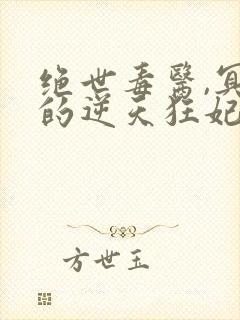 绝世毒醫,冥
的逆天狂妃
方世玉